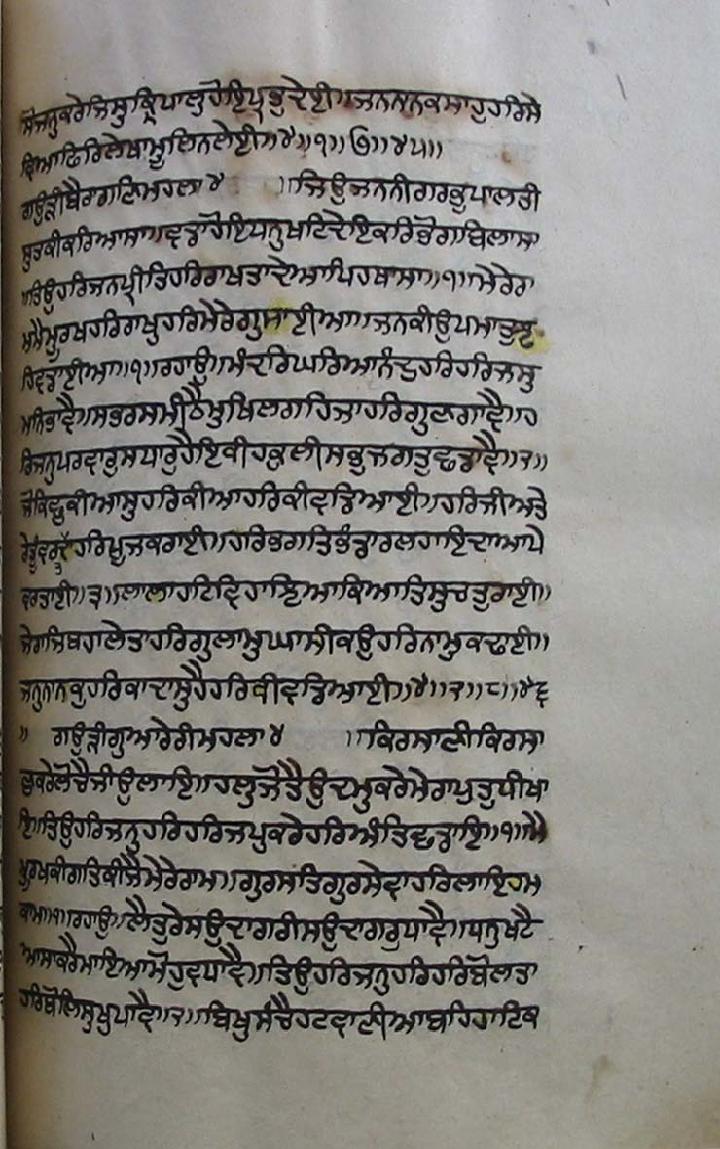 ਸੋਜਨੁਕਰੇਜਿਸੁਕ੍ਰਿਪਾਲੁਹੋਇਪ੍ਰਭੁਦੇਈ॥ਜਨਨਾਨਕਸਾਹੁਹਰਿਸੇ
ਵਿਆਫਿਰਿਲੇਖਾਮੂਲਿਨਲੇਈ॥੪॥੧॥੭॥੪੫॥
ਗਉੜੀਬੈਰਾਗਣਿਮਹਲਾ੪ ॥ਜਿਉਜਨਨੀਗਰਭੁਪਾਲਤੀ
ਸੁਤਕੀਕਰਿਆਸਾ॥ਵਡਾਹੋਇਧਨੁਖਟਿਦੇਇਕਰਿਭੋਗਬਿਲਾਸਾ
॥ਤਿਉਹਰਿਜਨਪ੍ਰੀਤਿਹਰਿਰਾਖਤਾਦੇਆਪਿਹਥਾਸਾ॥੧॥ਮੇਰੇਰਾ
ਮਮੈਮੂਰਖਹਰਿਰਾਖੁਹਰਿਮੇਰੇਗੁਸਾਈਆ॥ਜਨਕੀਉਪਮਾਤੁਝ
ਹਿਵਡਾਈਆ॥੧॥ਰਹਾਉ॥ਮੰਦਰਿਘਰਿਆਨੰਦੁਹਰਿਹਰਿਜਸੁ
ਮਨਿਭਾਵੈ॥ਸਭਰਸਮੀਠੇਮੁਖਿਲਗਹਿਜਾਹਰਿਗੁਣਗਾਵੈ॥ਹ
ਰਿਜਨੁਪਰਵਾਰੁਸਧਾਰੁਹੈਇਕੀਹਕੁਲੀਸਭੁਜਗਤੁਛਡਾਵੈ॥੨॥
ਜੋਕਿਛੁਕੀਆਸੁਹਰਿਕੀਆਹਰਿਕੀਵਡਿਆਈ॥ਹਰਿਜੀਅਤੇ
ਰੇਤੂੰਵਰਤਦਾਹਰਿਪੂਜਕਰਾਈ॥ਹਰਿਭਗਤਿਭੰਡਾਰਲਹਾਇਦਾਆਪੇ
ਵਰਤਾਈ॥੩॥ਲਾਲਾਹਟਿਵਿਹਾਝਿਆਕਿਆਤਿਸੁਚਤੁਰਾਈ॥
ਜੇਰਾਜਿਬਹਾਲੇਤਾਹਰਿਗੁਲਾਮੁਘਾਸੀਕਉਹਰਿਨਾਮੁਕਢਾਈ॥
ਜਨੁਨਾਨਕੁਹਰਿਕਾਦਾਸੁਹੈਹਰਿਕੀਵਡਿਆਈ॥੪॥੨॥੮॥੪੬
॥ ਗਉੜੀਗੁਆਰੇਰੀਮਹਲਾ੪ ॥ਕਿਰਸਾਣੀਕਿਰਸਾ
ਣੁਕਰੇਲੋਚੈਜੀਉਲਾਇ॥ਹਲੁਜੋਤੈਉਦਮੁਕਰੇਮੇਰਾਪੁਤੁਧੀਖਾ
ਇ॥ਤਿਉਹਰਿਜਨੁਹਰਿਹਰਿਜਪੁਕਰੇਹਰਿਅੰਤਿਛਡਾਇ॥੧॥ਮੈ
ਮੂਰਖਕੀਗਤਿਕੀਜੈਮੇਰੇਰਾਮ॥ਗੁਰਸਤਿਗੁਰਸੇਵਾਹਰਿਲਾਇਹਮ
ਕਾਮ॥੧॥ਰਹਾਉ॥ਲੈਤੁਰੇਸਉਦਾਗਰੀਸਉਦਾਗਰੁਧਾਵੈ॥ਧਨੁਖਟੈ
ਆਸਕਰੈਮਾਇਆਮੋਹੁਵਧਾਵੈ॥ਤਿਉਹਰਿਜਨੁਹਰਿਹਰਿਬੋਲਤਾ
ਹਰਿਬੋਲਿਸੁਖੁਪਾਵੈ॥੨॥ਬਿਖੁਸੰਚੈਹਟਵਾਣੀਆਬਹਿਹਾਟਿਕ